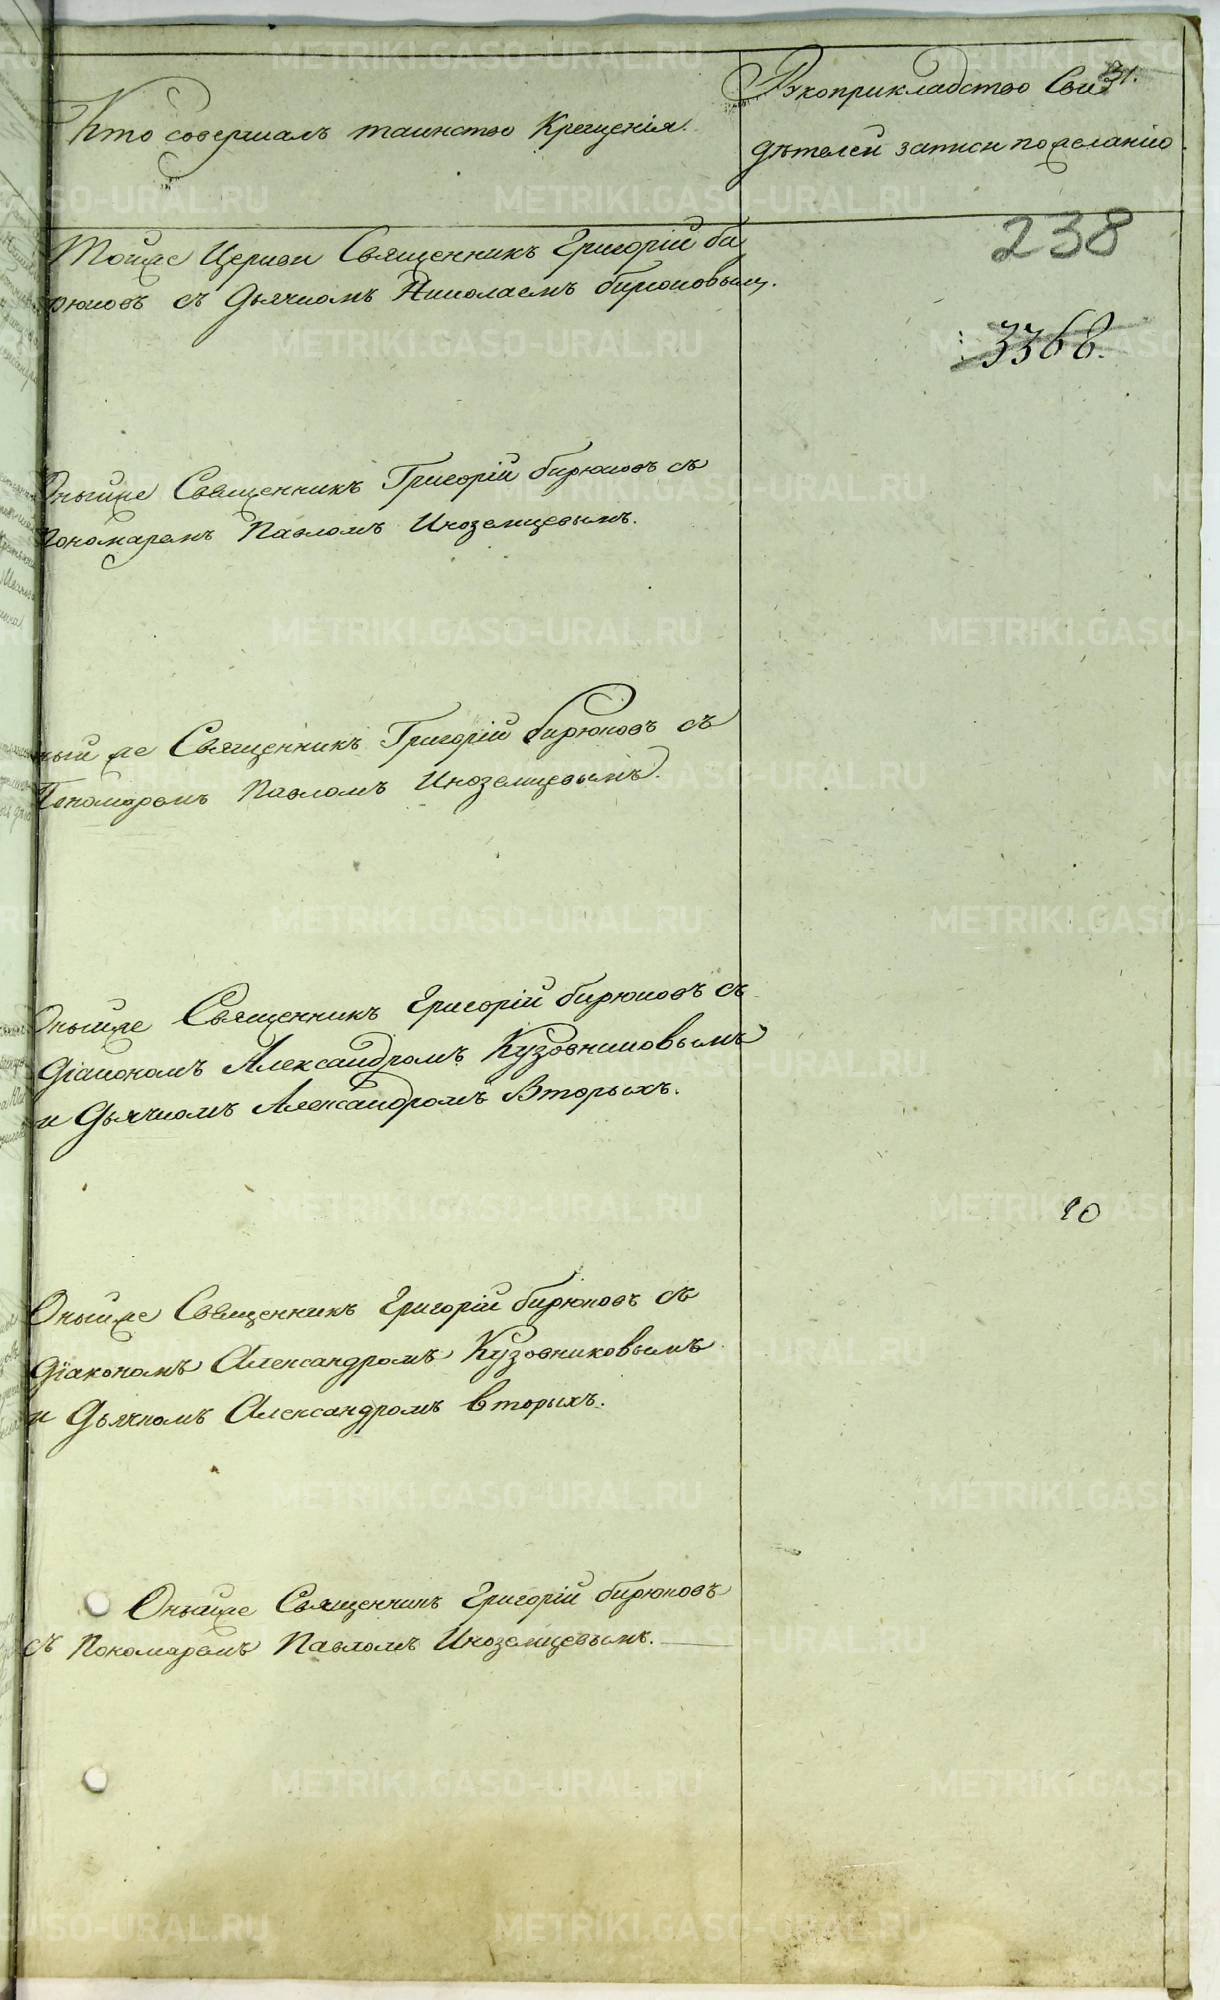 31.
Кто совершалъ таинство Крещенія.
Рукоприкладство Сви
дѣтелей записи по желанію.
238
3368.
Тойже Церкви Священникъ Григорій Би
рюковъ съ Дьячкомъ Николаемъ Бирюковымъ.
Оныйже Священникъ Григорій Бирюковъ съ
Пономаремъ Павломъ Иноземцевымъ.
Оный же Священникъ Григорій Бирюковъ съ
Пономаремъ Павломъ Иноземцевымъ.
Оныйже Священникъ Григорій Бирюковъ съ
Діакономъ Александромъ Кузовниковымъ
и Дьячкомъ Александромъ Вторыхъ.
10
Оныйже Священникъ Григорій Бирюковъ съ
Діакономъ Александромъ Кузовниковымъ
и Дьячкомъ Александромъ Вторыхъ.
Оныйже Священникъ Григорій Бирюковъ
съ Пономаремъ Павломъ Иноземцевымъ.
METRIKI.GASO-URAL.RU